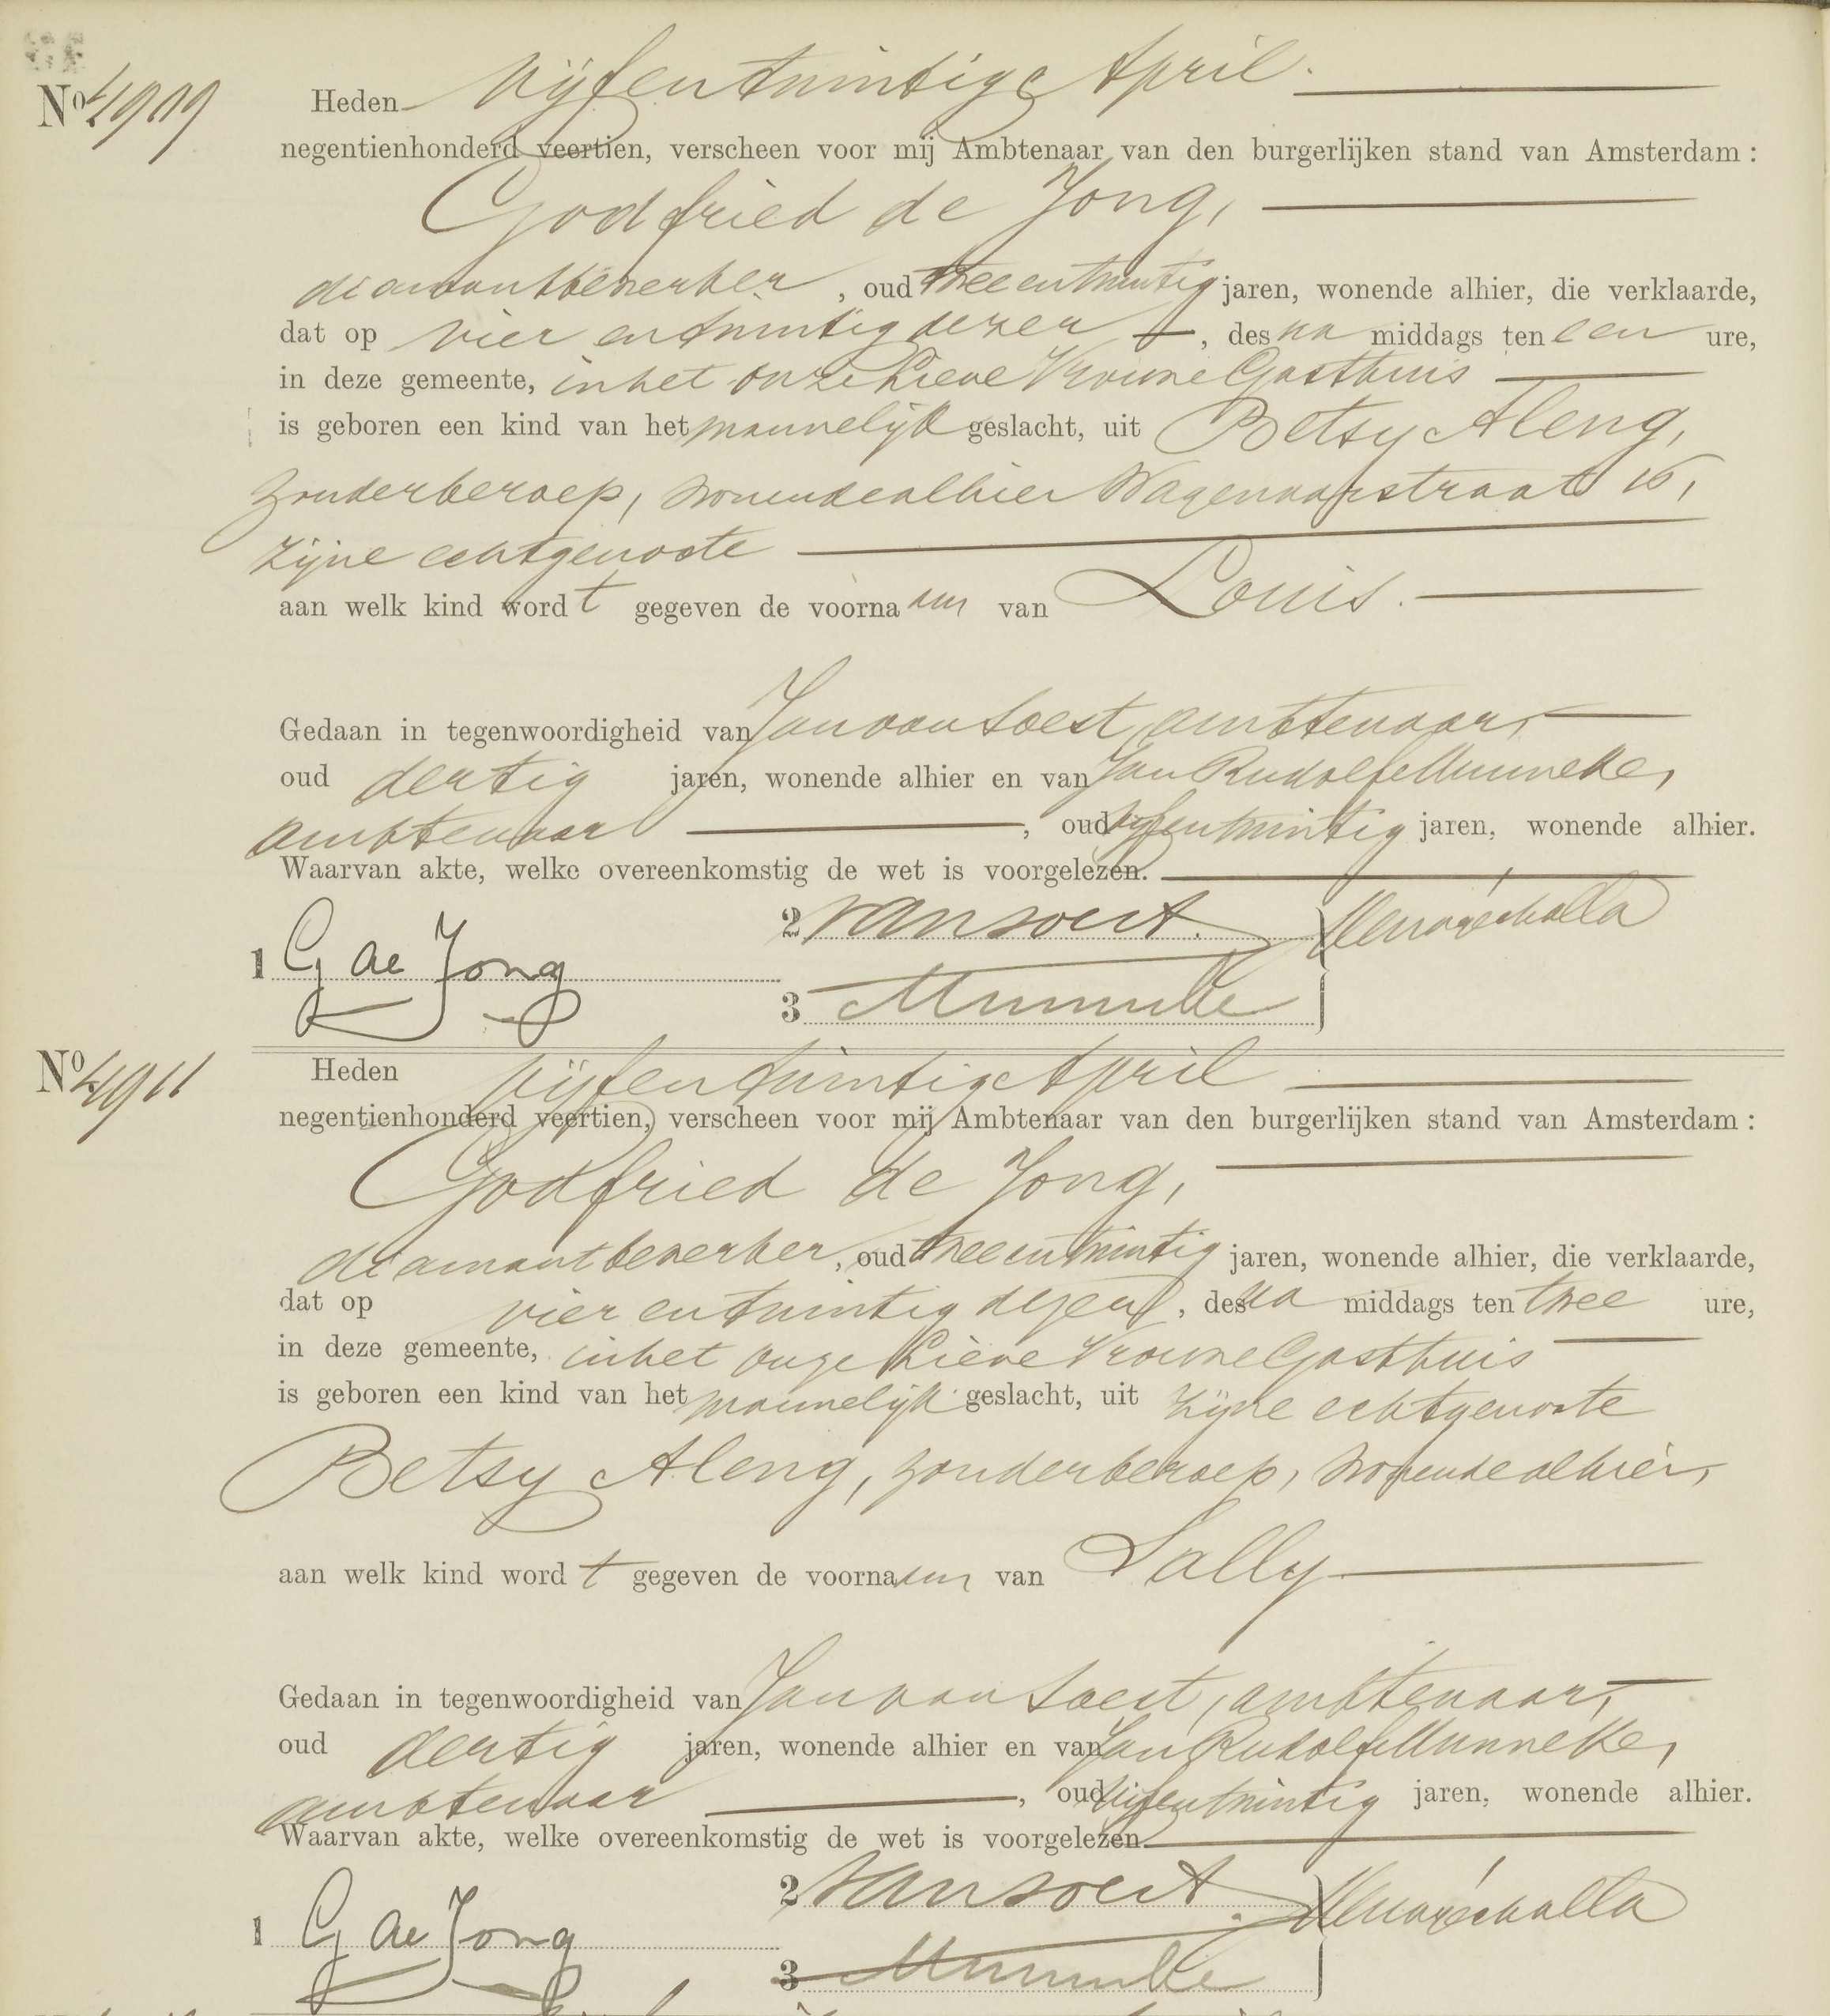 No 4909
Heden vijfentwintig April.
negentienhonderd veertien, verscheen voor mij Ambtenaar van den burgerlijken stand van Amsterdam:
Godfried de Jong,
diamantbewerker, oud tweeentwintig jaren, wonende alhier, die verklaarde,
dat op vier entwintig dezer, des na middags ten een ure,
in deze gemeente, in het Onze Lieve Vrouwe Gasthuis
is geboren een kind van het mannelijk geslacht, uit Betsy Aleng,
zonder beroep, wonende alhier Wagenaarstraat 16,
zijne echtgenoote
aan welk kind wordt gegeven de voornaam van Louis.
Gedaan in tegenwoordigheid van Jan van Soest, ambtenaar,
oud dertig jaren, wonende alhier en van Jan Rudolf Munneke,
ambtenaar, oud vijfentwintig jaren, wonende alhier.
Waarvan akte, welke overeenkomstig de wet is voorgelezen.
2 van Soest.
1 G de Jong
3 Munneke
No 4911
Heden vijfentwintig April
negentienhonderd veertien, verscheen voor mij Ambtenaar van den burgerlijken stand van Amsterdam:
Godfried de Jong,
diamantbewerker, oud tweeentwintig jaren, wonende alhier, die verklaarde,
dat op vier entwintig dezer, des na middags ten twee ure,
in deze gemeente, in het Onze Lieve Vrouwe Gasthuis
is geboren een kind van het mannelijk geslacht, uit zijne echtgenoote
Betsy Aleng, zonder beroep, wonende alhier,
aan welk kind wordt gegeven de voornaam van Sally
Gedaan in tegenwoordigheid van Jan van Soest, ambtenaar,
oud dertig jaren, wonende alhier en van Jan Rudolf Munneke,
ambtenaar, oud vijfentwintig jaren, wonende alhier.
Waarvan akte, welke overeenkomstig de wet is voorgelezen.
2 van Soest.
1 G de Jong
3 Munneke